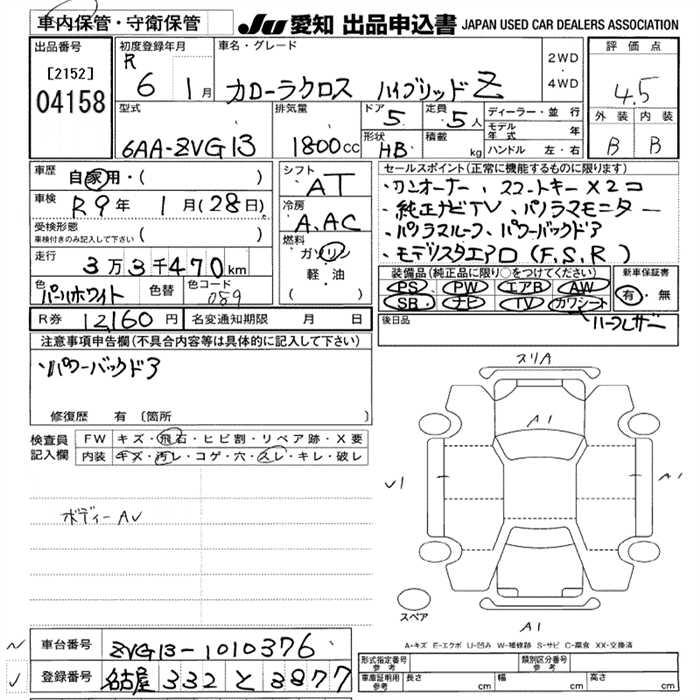 車内保管・守衛保管
JU 愛知 出品申込書 JAPAN USED CAR DEALERS ASSOCIATION
出品番号
[2152]
04158
初度登録年月
R 6 1月
車名・グレード
カローラクロス ハイブリッド Z
2WD
・
4WD
評価点
4.5
外装 内装
B B
型式
6AA-ZVG13
排気量
1800cc
ドア 5
形状 HB
定員 5人
積載 kg
ディーラー・並行
モデル年式 年
ハンドル 左・右
車歴 自家用・( )
車検 R9年 1月(28日)
受検形態
車検付きのみ記入して下さい ( )
走行 3万3千470km
色 パールホワイト 色替 色コード 089
シフト
AT
冷房
A.AC
燃料
ガソリン
・
軽・油
( )
セールスポイント(正常に機能するものに限ります)
・ワンオーナー、スマートキー×2コ
・純正ナビTV、パノラマモニター
・パノラマルーフ、パワーバックドア
・モデリスタエアロ(F,S,R)
装備品(純正品に限り○をつけてください)
PS・PW・エアB・AW
SB・ナビ・TV・カワシート
新車保証書
有・無
R券 12,160円 名変通知期限 月 日
後日品
ハーフレザー
注意事項申告欄(不具合内容等は具体的に記入して下さい)
・パワーバックドア
修復歴 有 〔箇所
検査員記入欄
FW キズ・飛石・ヒビ割・リペア跡・X要
内装 キズ・汚レ・コゲ・穴・スレ・キレ・破レ
ボディーAU
スリA
A1
U1
A1
スペア
A1
A-キズ E-エクボ U-凹み W-補修跡 S-サビ C-腐食 XX-交換済
車台番号 ZVG13-1010376
登録番号 名古屋 332 と 3877
形式指定番号 参考
類別区分番号 参考
車庫証明用 参考
長さ cm 幅 cm 高さ cm